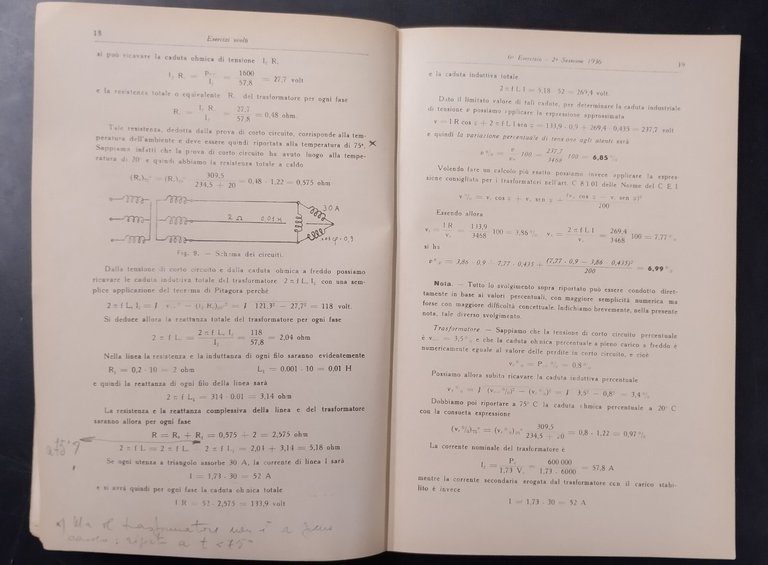 18
Esercizi svolti
si può ricavare la caduta ohmica di tensione I₂ R.
I₂ R. = = 1600 / 57,8 = 27,7 volt
e la resistenza totale o equivalente R. del trasformatore per ogni fase
R. = I₂ R. / I₂ = 27,7 / 57,8 = 0,48 ohm.
Tale resistenza, dedotta dalla prova di corto circuito, corrisponde alla tem-
peratura dell'ambiente e deve essere quindi riportata alla temperatura di 75°.
Sappiamo infatti che la prova di corto circuito ha avuto luogo alla tempe-
ratura di 20° e quindi abbiamo la resistenza totale a caldo
309,5 / 234,5 + 20 = 0,48 · 1,22 = 0,575 ohm
30A
2 Ω 0,01H
Fig. 9. — Schema dei circuiti.
Dalla tensione di corto circuito e dalla caduta ohmica a freddo possiamo
ricavare le caduta induttiva totale del trasformatore 2 π f L. I₂ con una sem-
plice applicazione del teorema di Pitagora perchè
= 121,3² — 27,7² = 118 volt.
Si deduce allora la reattanza totale del trasformatore per ogni fase
2 π f L. = 2 π f L. I₂ / I₂ = 118 / 57,8 = 2,04 ohm
Nella linea la resistenza e la induttanza di ogni filo saranno evidentemente
R₁ = 0,2 · 10 = 2 ohm L₁ = 0.001 · 10 = 0,01 H
e quindi la reattanza di ogni filo della linea sarà
2 π f L₁ = 314 · 0.01 = 3,14 ohm
La resistenza e la reattanza complessiva della linea e del trasformatore
saranno allora per ogni fase
= 0,575 + 2 = 2,575 ohm
= 2,04 + 3,14 = 5,18 ohm
Se ogni utenza a triangolo assorbe 30 A, la corrente di linea I sarà
I = 1,73 · 30 = 52 A
e si avrà quindi per ogni fase la caduta ohmica totale
I R = 52 · 2,575 = 133,9 volt
Ma il trasformatore non è a
a t =75°
6° Esercizio - 2ª Sessione 1936
19
e la caduta induttiva totale
2 π f L I = 5,18 · 52 = 269,4 volt.
Dato il limitato valore di tali cadute, per determinare la caduta industriale
di tensione v possiamo applicare la espressione approssimata
= 133,9 · 0,9 + 269,4 · 0,435 = 237,7 volt
e quindi la variazione percentuale di tensione agli utenti sarà
100 = 237,7 / 3468 100 = 6,85 %
Volendo fare un calcolo più esatto possiamo invece applicare la espres-
sione consigliata per i trasformatori nell'art. C 8.1.01 delle Norme del C E I.
Essendo allora
133,9 / 3468 100 = 3,86 % = 2 π f L I = 269,4 / 3468 100 = 7,77 %
si ha
= 3,86 · 0,9 + 7,77 · 0,435 + (7,77 · 0,9 — 3,86 · 0,435)² / 200 = 6,99 %
Nota. — Tutto lo svolgimento sopra riportato può essere condotto diret-
tamente in base ai valori percentuali, con maggiore semplicità numerica ma
forse con maggiore difficoltà concettuale. Indichiamo brevemente, nella presente
nota, tale diverso svolgimento.
Trasformatore — Sappiamo che la tensione di corto circuito percentuale
= 3,5 % e che la caduta ohmica percentuale a pieno carico a freddo è
numericamente eguale al valore delle perdite in corto circuito, e cioè
= 0,8 %
Possiamo allora subito ricavare la caduta induttiva percentuale
= 3,5² — 0,8² = 3,4 %
Dobbiamo poi riportare a 75° C la caduta ohmica percentuale a 20° C
con la consueta espressione
309,5 / 234,5 + 20 = 0,8 · 1,22 = 0,97 %
La corrente nominale del trasformatore è
= 600 000 / 1,73 · 6000 = 57,8 A
mentre la corrente secondaria erogata dal trasformatore con il carico stabi-
lito è invece
I = 1,73 · 30 = 52 A